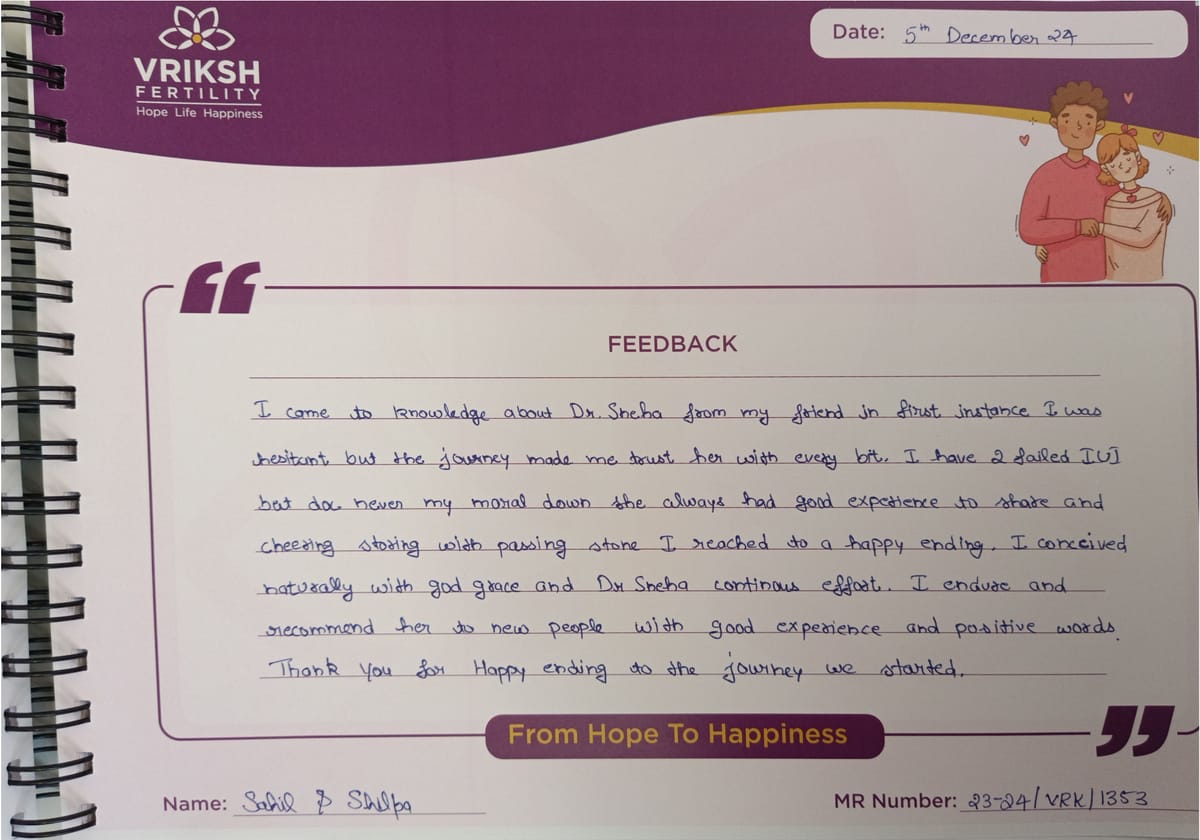 VRIKSH
FERTILITY
Hope Life Happiness
Date: 5th December 24
FEEDBACK
I came to knowledge about Dr. Sneha from my friend in first instance I was
hesitant but the journey made me trust her with every bit. I have 2 failed IUI
but doc never my moral down she always had good experience to share and
cheering storing with passing stone I reached to a happy ending. I conceived
naturally with god grace and Dr Sneha continous effort. I endure and
recommend her to new people with good experience and positive words.
Thank you for Happy ending to the journey we started.
From Hope To Happiness
Name: Sahil & Shelpa
MR Number: 23-24/VRK/1353